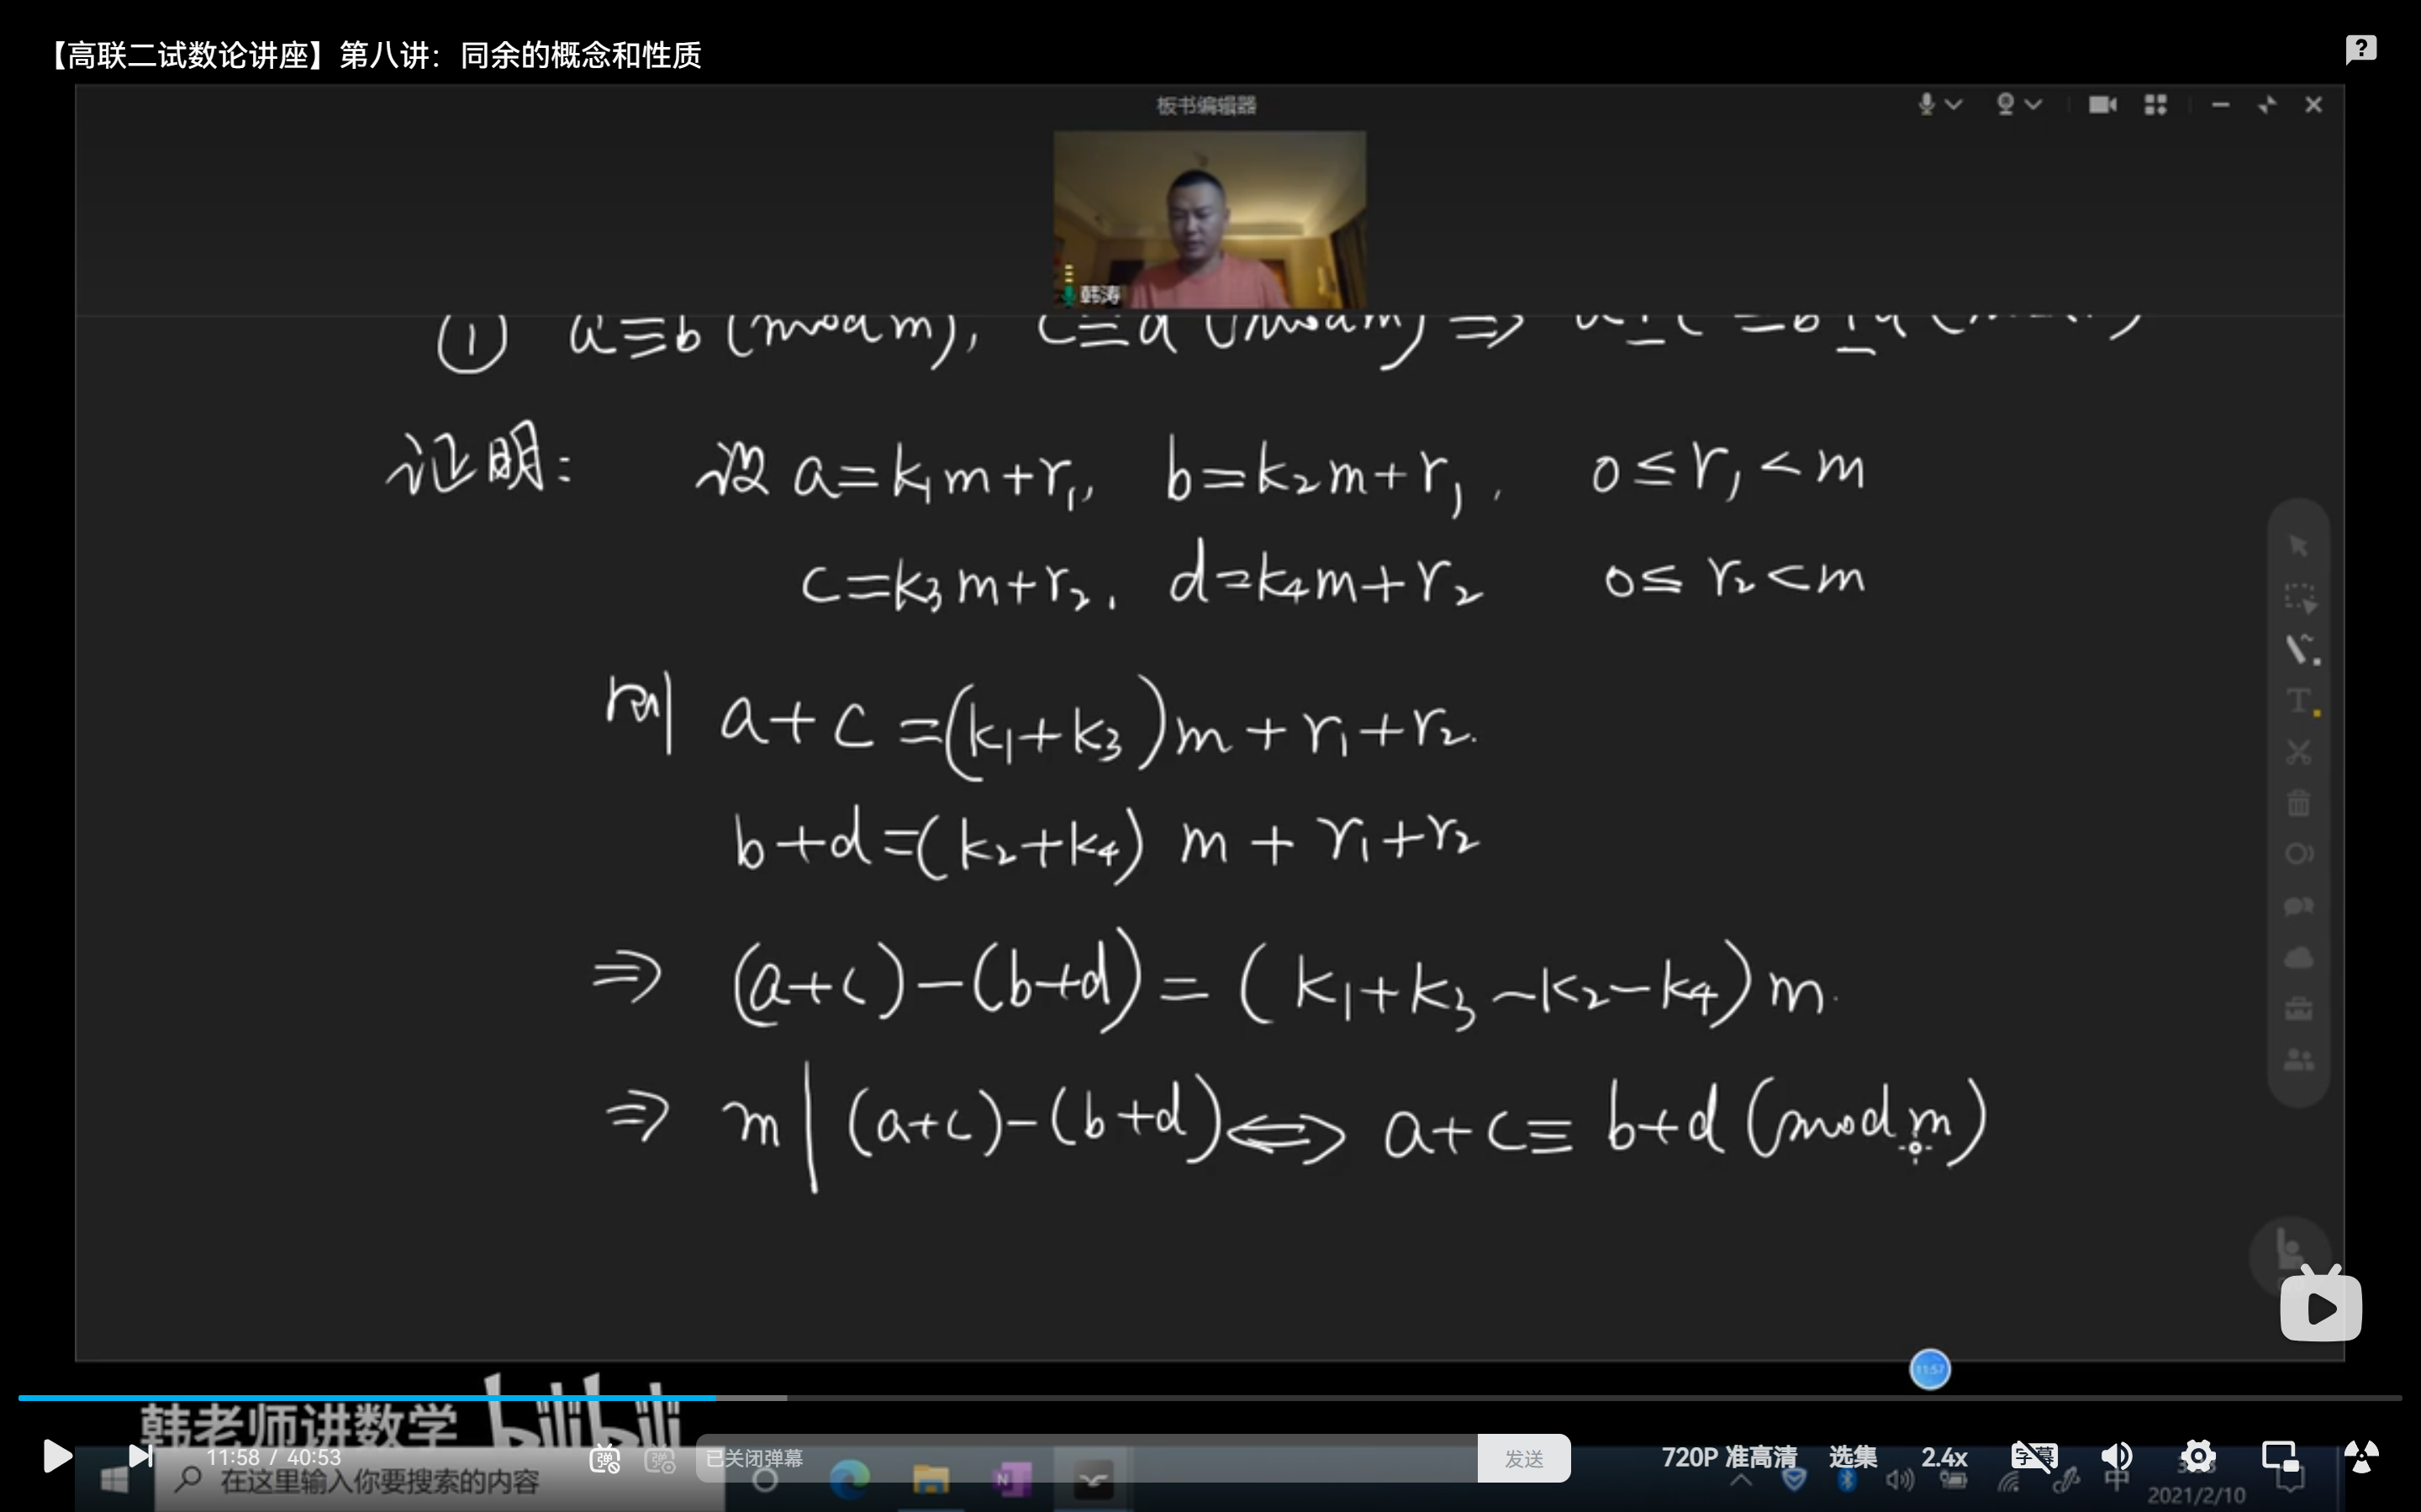 【高联二试数论讲座】第八讲：同余的概念和性质
板书编辑器
韩涛
① a≡b (mod m), c≡d (mod m) ⇒ a±c≡b±d
证明： 设 a=k₁m+r₁, b=k₂m+r₁, 0≤r₁<m
c=k₃m+r₂, d=k₄m+r₂ 0≤r₂<m
则 a+c=(k₁+k₃)m+r₁+r₂.
b+d=(k₂+k₄) m+r₁+r₂
⇒ (a+c)-(b+d)=(k₁+k₃-k₂-k₄)m.
⇒ m|(a+c)-(b+d)⇔ a+c≡b+d (mod m)
11:57
韩老师讲数学 bilibili
11:58 / 40:53 弹 弹 已关闭弹幕 发送 720P 准高清 选集 2.4x 字幕
在这里输入你要搜索的内容 中
2021/2/10